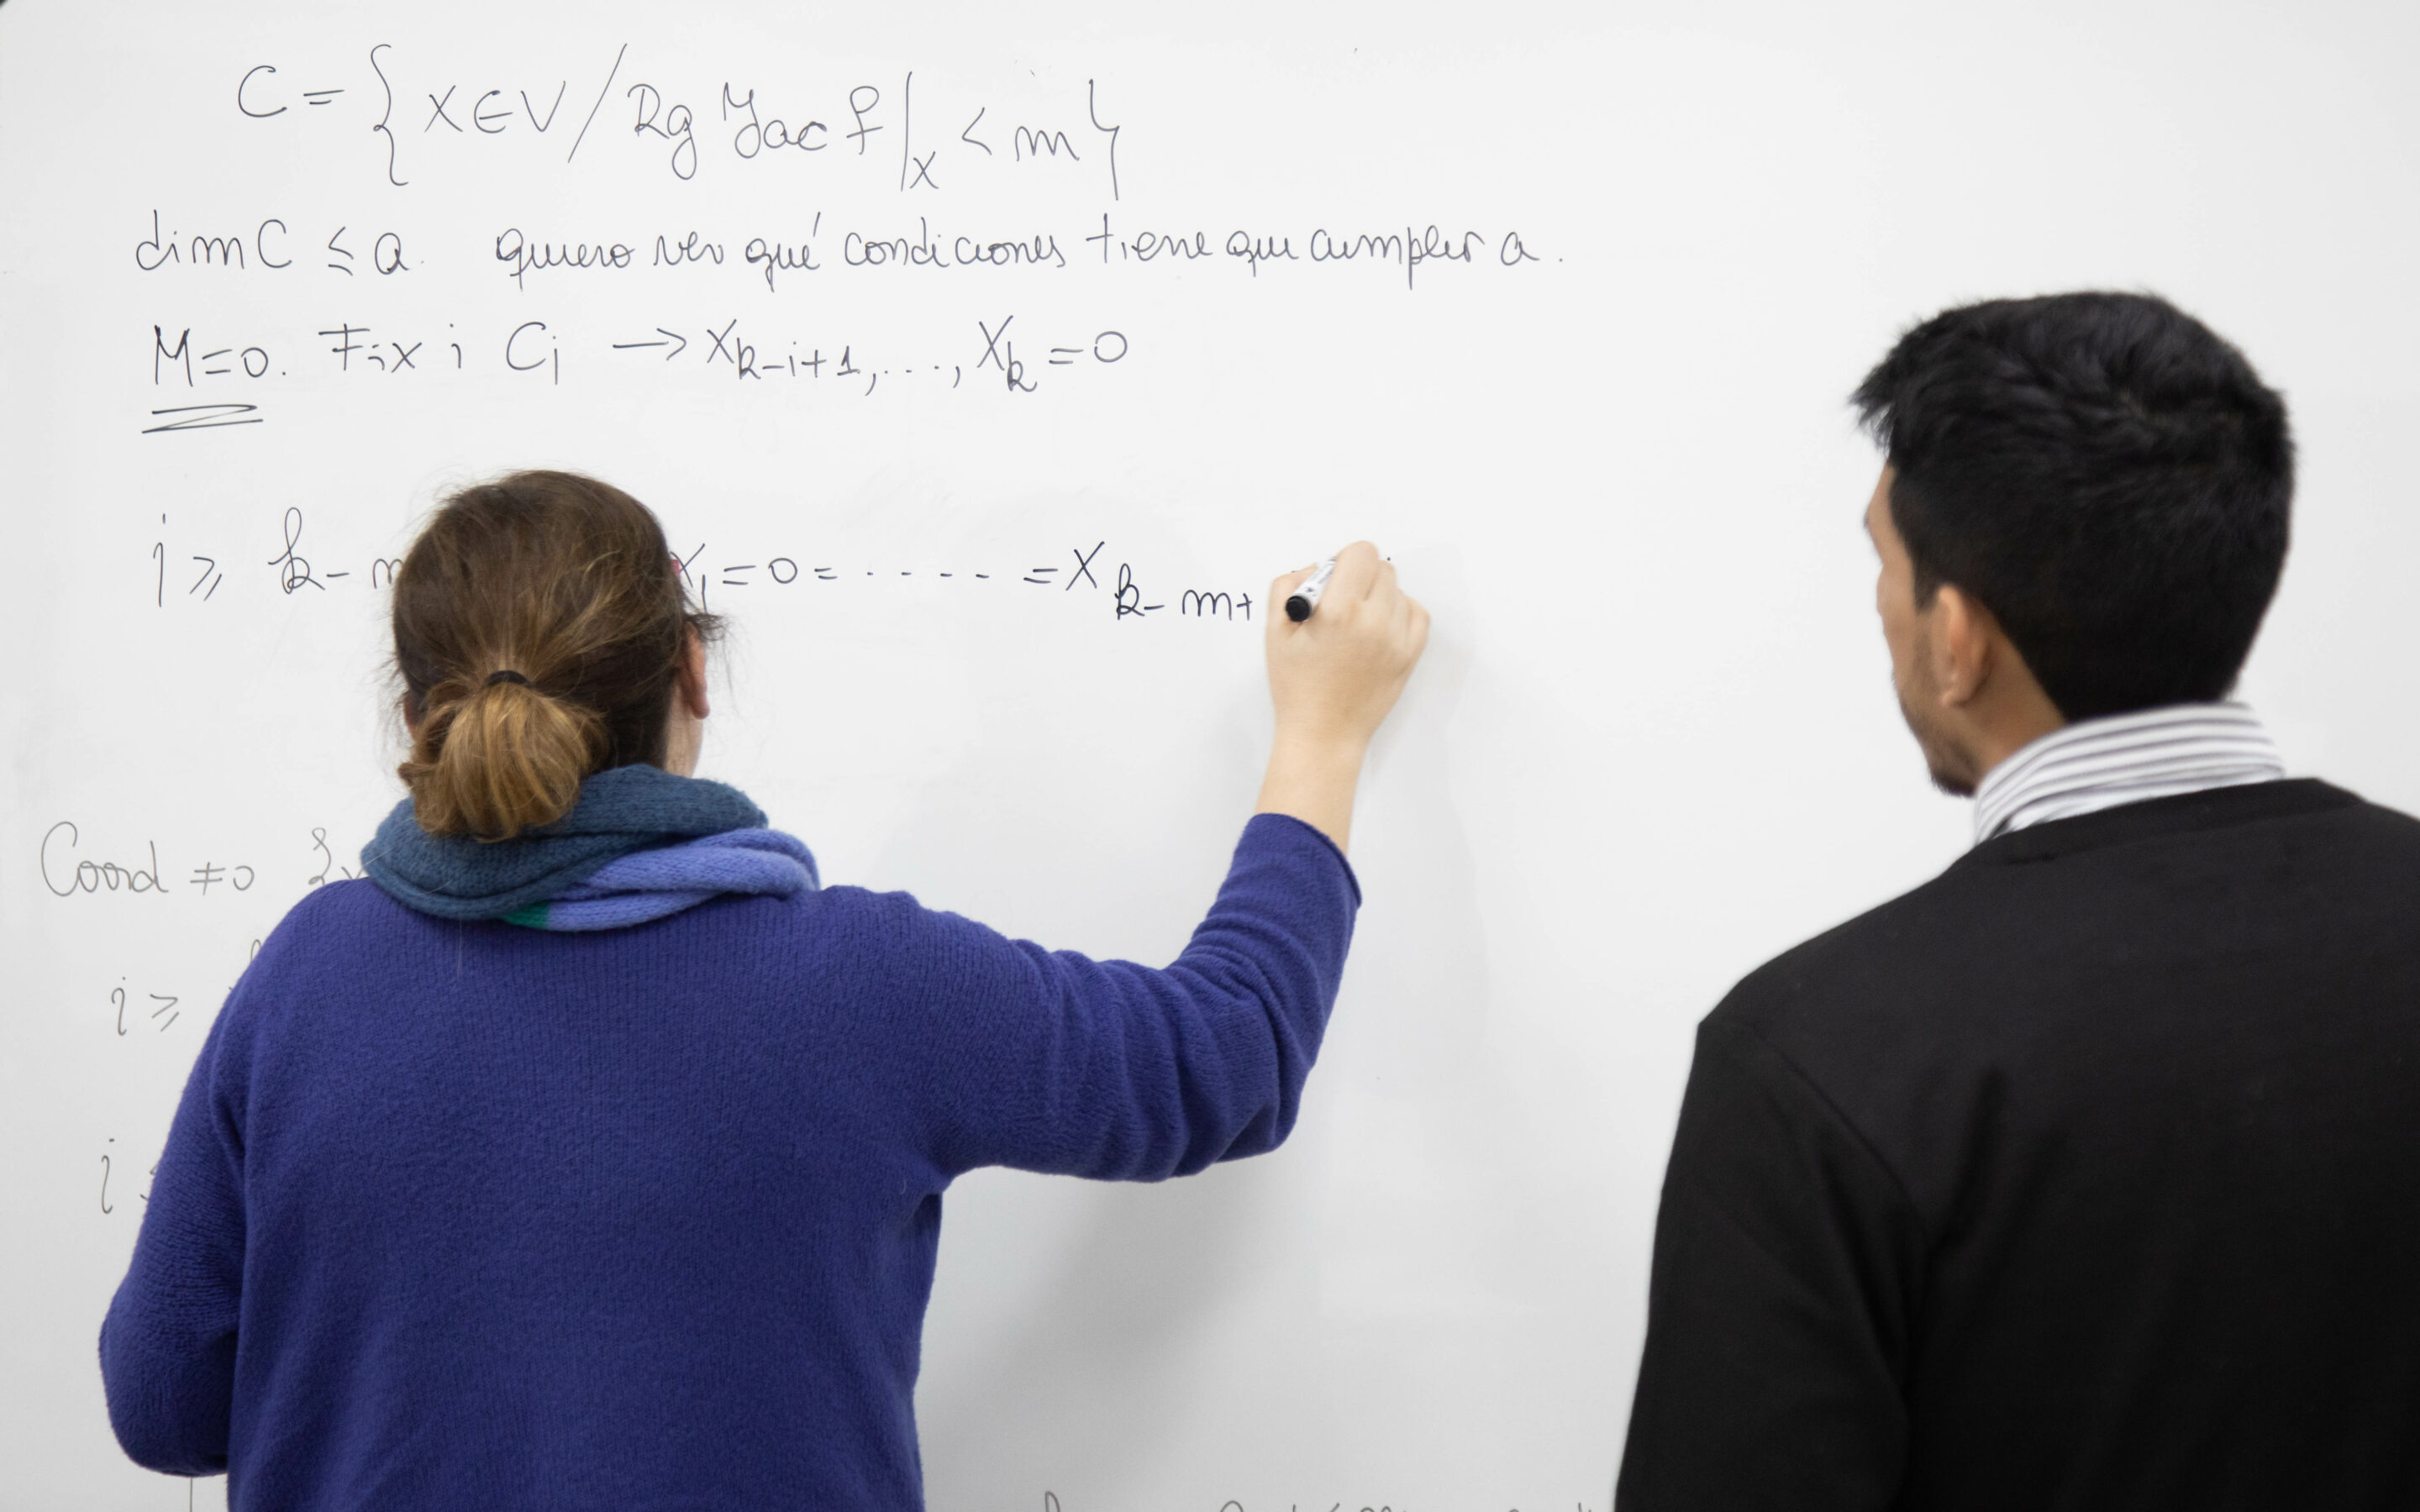 C = { x ∈ V / Rg Jac f|x < m }
dim C ≤ a. quiero ver qué condiciones tiene que cumplir a.
M=0. Fix i Ci → Xk-i+1, ..., Xk = 0
i ≥ k-m X1 = 0 = ---- = X k-m+
Coord ≠ 0 {
i ≥
i